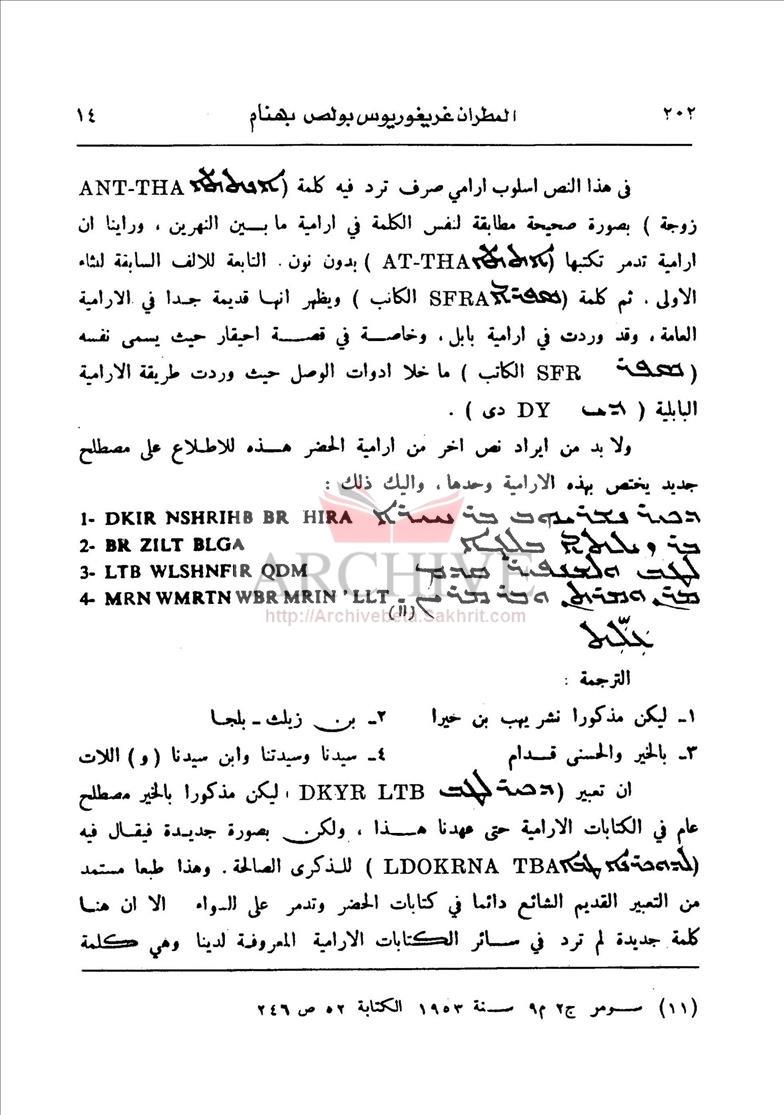 ٢٠٢ المطران غريغوريوس بولص بهنام ١٤
فى هذا النص اسلوب ارامي صرف ترد فيه كلمة (ܐܢܬܬܐ ANT-THA
زوجة ) بصورة صحيحة مطابقة لنفس الكلمة في ارامية ما بين النهرين ، وراينا ان
ارامية تدمر تكتبها (ܐܬܬܐ AT-THA ) بدون نون . التابعة للالف السابقة لثاء
الاولى . ثم كلمة (ܣܦܪܐ SFRA الكاتب ) ويظهر انها قديمة جدا في الارامية
العامة ، وقد وردت في ارامية بابل ، وخاصة في قصة احيقار حيث يسمى نفسه
( ܣܦܪ SFR الكاتب ) ما خلا ادوات الوصل حيث وردت طريقة الارامية
البابلية ( ܕܝ DY دى ) .
ولا بد من ايراد نص اخر من ارامية الحضر هذه للاطلاع على مصطلح
جديد يختص بهذه الارامية وحدها ، واليك ذلك :
1- DKIR NSHRIHB BR HIRA ܕܟܝܪ ܢܫܪܝܗܒ ܒܪ ܚܝܪܐ
2- BR ZILT BLGA ܒܪ ܙܝܠܬ ܒܠܓܐ
3- LTB WLSHNFIR QDM ܠܛܒ ܘܠܫܢܦܝܪ ܩܕܡ
4- MRN WMRTN WBR MRIN ' LLT ܡܪܢ ܘܡܪܬܢ ܘܒܪ ܡܪܝܢ
(١١)
ܐܠܠܬ
ARCHIVE
http://Archivebeta.Sakhrit.com
الترجمة :
١ـ ليكن مذكورا نشر يهب بن خيرا ٢ـ بن زيلث ـ بلجا
٣ـ بالخير والحسنى قدام ٤ـ سيدنا وسيدتنا وابن سيدنا (و) اللات
ان تعبير (ܕܟܝܪ ܠܛܒ DKYR LTB ، ليكن مذكورا بالخير مصطلح
عام في الكتابات الارامية حتى عهدنا هذا ، ولكن بصورة جديدة فيقال فيه
(ܠܕܘܟܪܢܐ ܛܒܐ LDOKRNA TBA ) للذكرى الصالحة . وهذا طبعا مستمد
من التعبير القديم الشائع دائما في كتابات الحضر وتدمر على السواء الا ان هنا
كلمة جديدة لم ترد في سائر الكتابات الارامية المعروفة لدينا وهي كلمة
(١١) سومر ج٢ م٩ سنة ١٩٥٣ الكتابة ٥٢ ص ٢٤٦